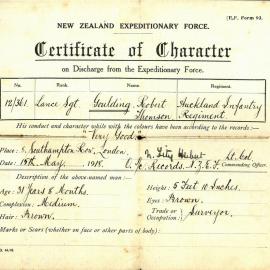 (E.F. Form 93.
NEW ZEALAND EXPEDITIONARY FORCE.
Certificate of Character
on Discharge from the Expeditionary Force.
No. Rank. Name. Regiment.
12/361 Lance Sgt. Goulding Robert Auckland Infantry
Thomson Regiment
His conduct and character while with the colours have been according to the records:—
Very Good.
Place: Southampton Row, London. Lt. Col.
Date: 15th May, 1918. Records. N.Z.E.F. Commanding Officer.
Description of the above-named man:
Age: 31 Years 8 Months. Height: 5 Feet 10 Inches.
Complexion: Medium. Eyes: Brown.
Hair: Brown. Trade or Occupation: Surveyor.
Marks or Scars (whether on face or other parts of body):